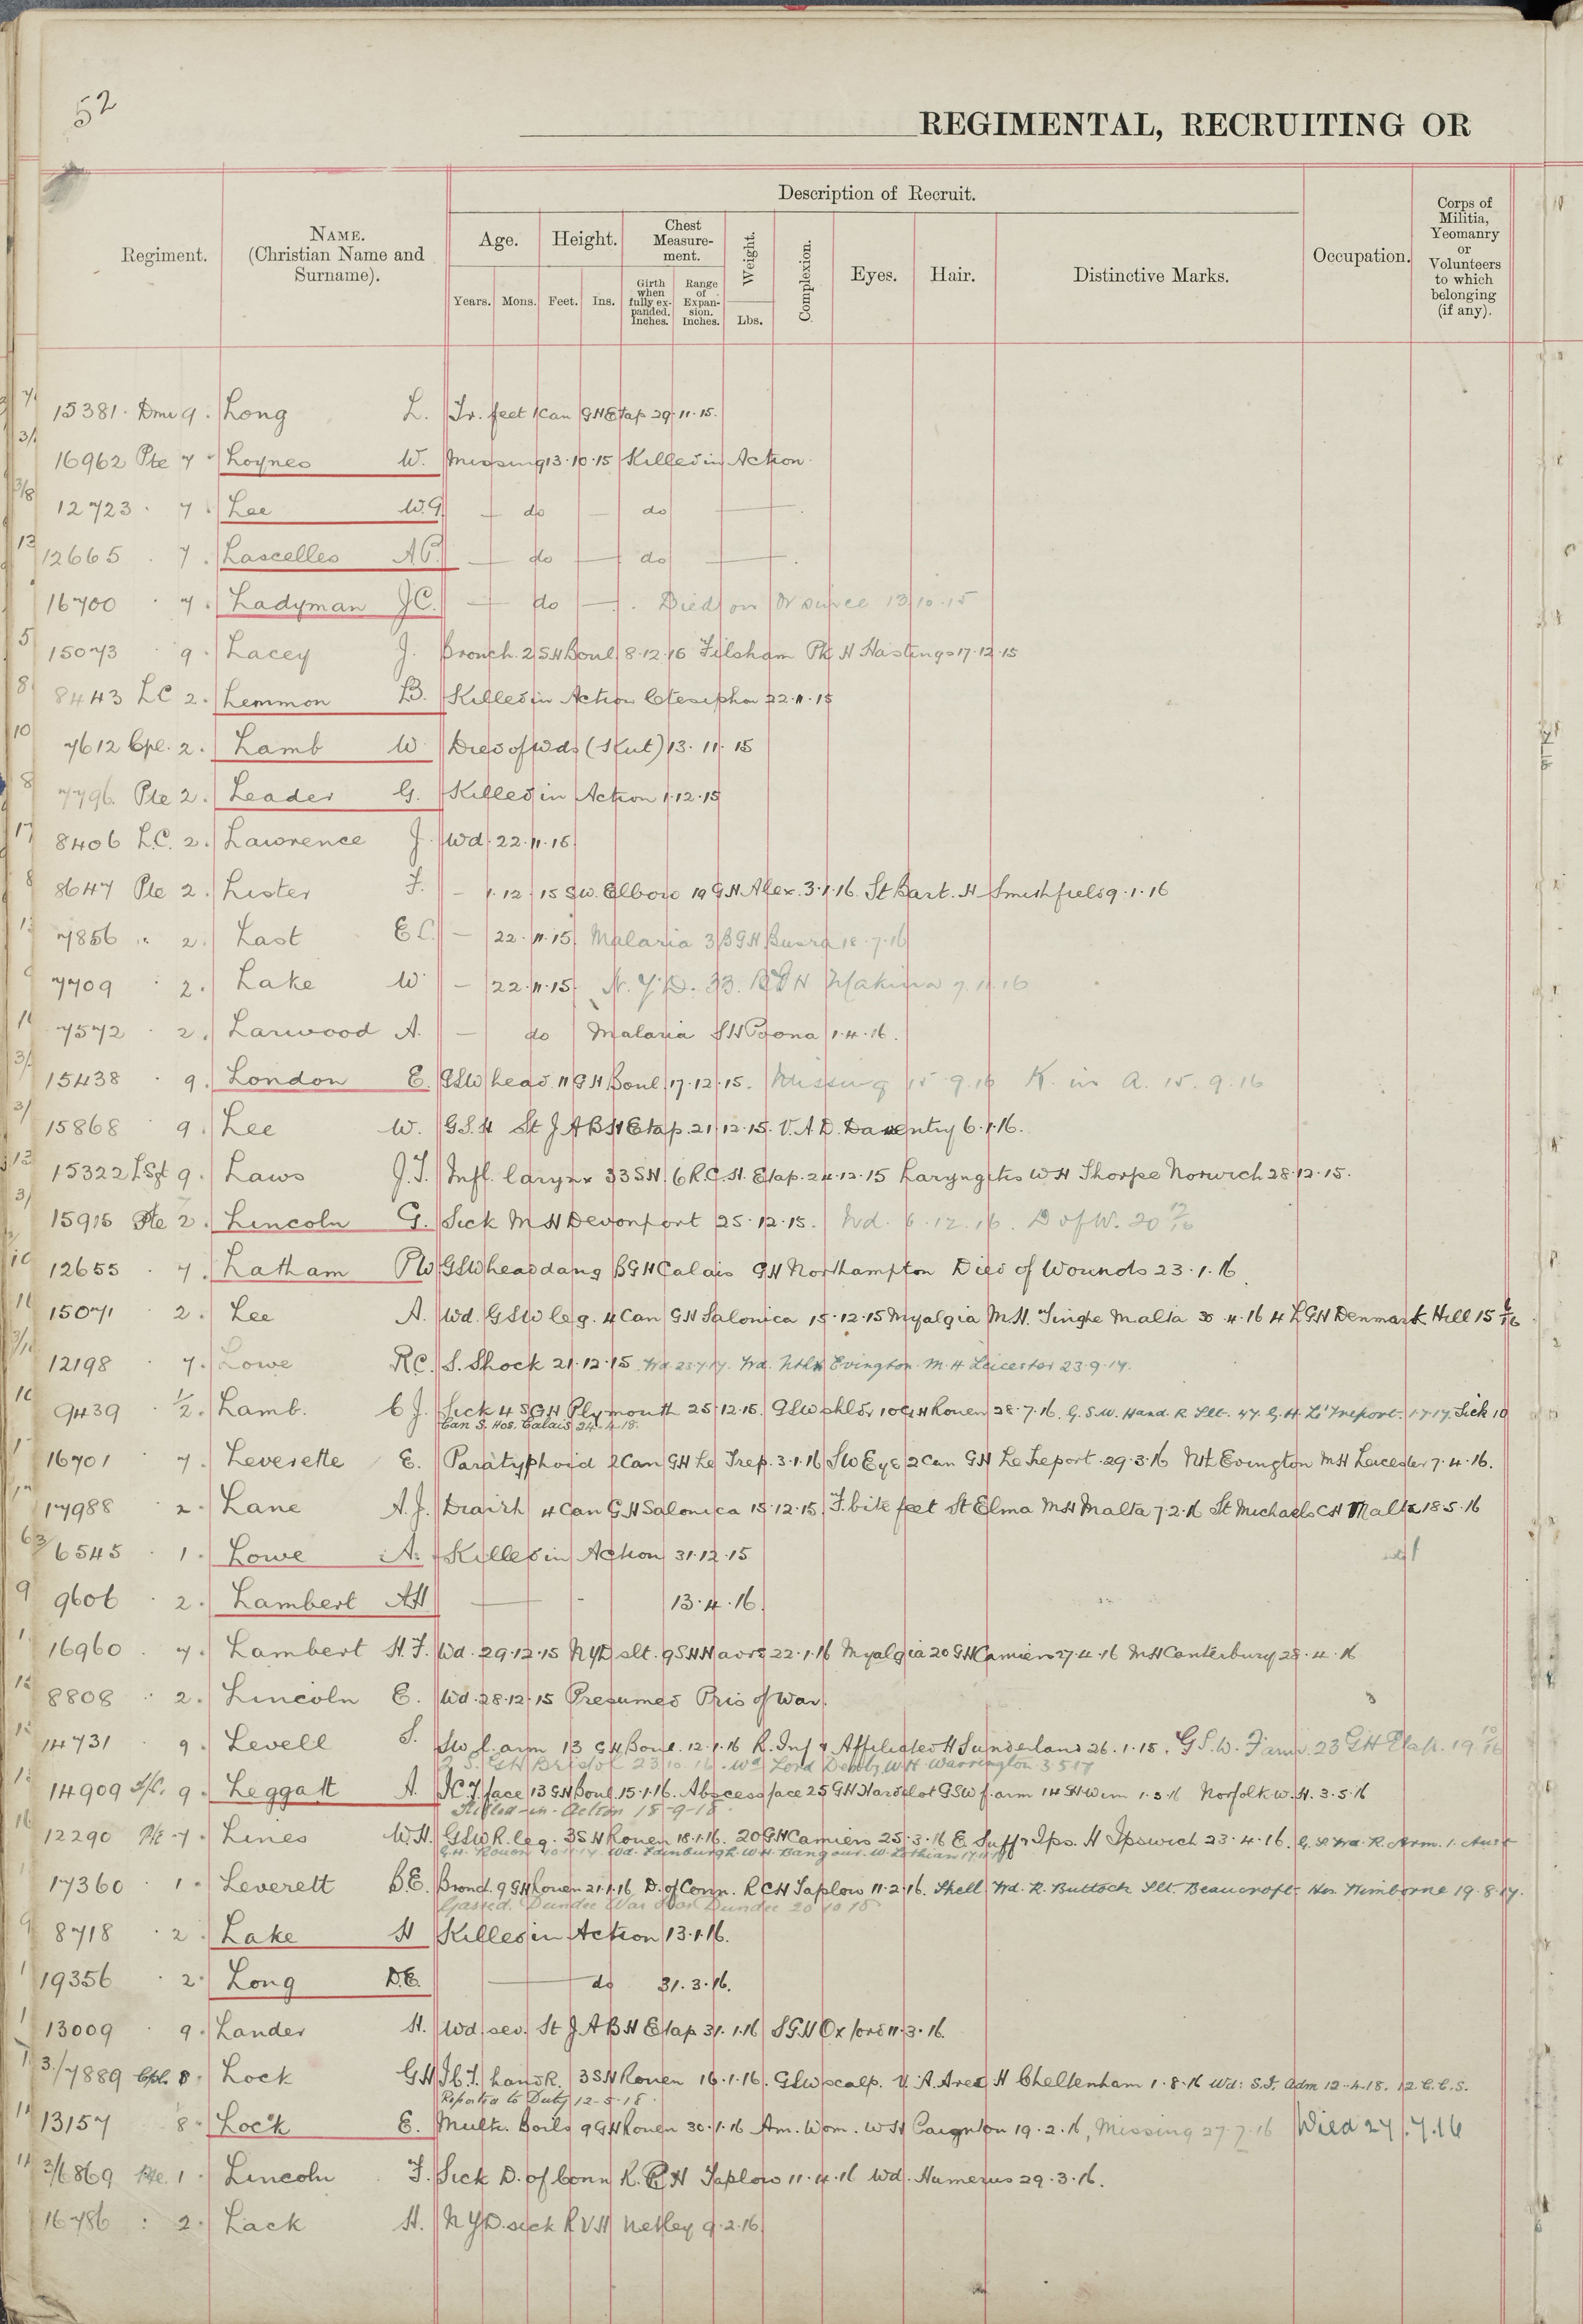 52
REGIMENTAL, RECRUITING OR
Description of Recruit.
Regiment.
NAME.
(Christian Name and
Surname).
Age.
Height.
Chest
Measure-
ment.
Weight.
Complexion.
Eyes.
Hair.
Distinctive Marks.
Occupation.
Corps of
Militia,
Yeomanry
or
Volunteers
to which
belonging
(if any).
Years.
Mons.
Feet.
Ins.
Girth
when
fully ex-
panded.
Inches.
Range
of
Expan-
sion.
Inches.
Lbs.
15381 Dmr 9. Long L. Tr. feet 1 Can GH Etap 29.11.15.
16962 Pte 7 Loynes W. Missing 13.10.15 Killed in Action.
12723 7. Lee W.G. — do — do —
12665 7. Lascelles A.P. — do — do —
16700 7. Ladyman J.C. — do —. Died on or since 13.10.15
15073 9. Lacey J. Bronch. 2 SH Boul. 8.12.15 Filsham Pk H Hastings 17.12.15
8443 LC 2. Lemmon B. Killed in Action Ctesiphon 22.11.15
7612 Cpl. 2. Lamb W. Died of Wds (Kut) 13.11.15
7796 Pte 2. Leader G. Killed in Action 1.12.15
8406 L.C. 2. Lawrence J. Wd. 22.11.15.
8647 Pte 2. Lister F. – 1.12.15 SW. Elbow 19 GH Alex. 3.1.16. St Bart. H Smithfield 9.1.16
7856 " 2. Last E.C. — 22.11.15. Malaria 3 BGH Busra 18.7.16
7709 2. Lake W. — 22.11.15. N.Y.D. 33. BGH Makina 9.11.16
7572 2. Larwood A. — do Malaria SH Poona 1.4.16.
15438 9. London E. GSW head 11 GH Boul. 17.12.15. Missing 15.9.16 K. in A. 15.9.16
15868 9. Lee W. G.S.H St J A B H Etap. 21.12.15. V.A.D. Daventry 6.1.16.
15322 LSgt 9. Laws J.T. Infl. larynx 33 SH. 6 R.C.H. Etap. 24.12.15 Laryngitis WH Thorpe Norwich 28.12.15.
15915 Pte 2. Lincoln G. Sick MH Devonport 25.12.15. Wd. 6.12.16. D of W. 20 12/16
12655 7. Latham PW GSW head dang BGH Calais GH Northampton Died of Wounds 23.1.16.
15071 2. Lee A. Wd. GSW leg. 4 Can GH Salonica 15.12.15 Myalgia M.H. Tinghe Malta 30.4.16 4 LGH Denmark Hill 15 6/16
12198 7. Lowe R.C. S. Shock 21.12.15 Wd. Nth Evington. M.H Leicester 23.9.17.
9439 1/2. Lamb. C J. Sick 4 SGH Plymouth 25.12.15. GSW shldr 10 GH Rouen 28.7.16. G.S.W. Hand. R. Slt. 47. G.H. Le Treport. 1.7.17. Sick 10
Can S. Hos. Calais 24.4.18.
16701 7. Leverette E. Paratyphoid 2 Can GH Le Trep. 3.1.16 SW Eye 2 Can GH Le Treport. 29.3.16 Nth Evington MH Leicester 7.4.16.
17988 2. Lane A.J. Diarrh 4 Can GH Salonica 15.12.15. F. bite feet St Elma MH Malta 7.2.16 St Michaels CH Malta 18.5.16
6545 1. Lowe A. Killed in Action 31.12.15
9606 2. Lambert A.H — - 13.4.16.
16960 7. Lambert H.F. Wd. 29.12.15 NYD slt. 9 SH Havre 22.1.16 Myalgia 20 GH Camiers 27.4.16 MH Canterbury 28.4.16
8808 2. Lincoln E. Wd. 28.12.15 Presumed Pris of War.
14731 9. Levell S. SW f. arm 13 GH Boul. 12.1.16 R. Inf & Affiliated H Sunderland 26.1.15. G.S.W. F arm. 23 GH Etap. 19 10/16
2 S. GH Bristol 23.10.16. Wd Lord Derby W H Warrington 3.5.17
14909 9. Leggatt A. ICT face 13 GH Boul. 15.1.16. Abscess face 25 GH Hardelot GSW f. arm 14 SH Wim 1.3.16 Norfolk W.H. 3.5.16
Killed-in-Action 18-9-18.
12290 Pte 7. Lines W.H. GSW R. leg. 3 SH Rouen 18.1.16. 20 GH Camiers 25.3.16 E. Suff & Ips. H Ipswich 23.4.16. G.S. Wd. R. Arm. 1. Aust
G.H. Rouen Wd. Edinburgh. W.H. Bangour. W. Lothian
17360 1. Leverett B.E. Bronch. 9 GH Rouen 21.1.16 D. of Conn. RCH Taplow 11.2.16. Shell Wd. R. Buttock Slt. Beaucroft. Hos. Wimborne 19.8.17.
Gassed. Dundee War Hos Dundee 20 10 18
8718 2. Lake H Killed in Action 13.1.16.
19356 2. Long D.E. — do 31.3.16.
13009 9. Lander H. Wd. sev. St J A B H Etap 31.1.16 SGH Oxford 11.3.16.
3/7889 Cpl. 8. Lock G H I.C.T. hand R. 3 SH Rouen 16.1.16. GSW scalp. V. A. Area H Cheltenham 1.8.16 Wd: S.I. Adm 12-4-18. 12.C.C.S.
Reported to Duty 12-5-18.
13157 8. Lock E. Multi. Boils 9 GH Rouen 30.1.16 Am. Wom. W H Paignton 19.2.16, Missing 27.7.16 Died 27.7.16
3/6869 Pte. 1. Lincoln F. Sick D. of Conn R. C H Taplow 11.4.16 Wd. Humerus 29.3.16.
16786 : 2. Lack H. NYD. sick RVH Netley 9.2.16